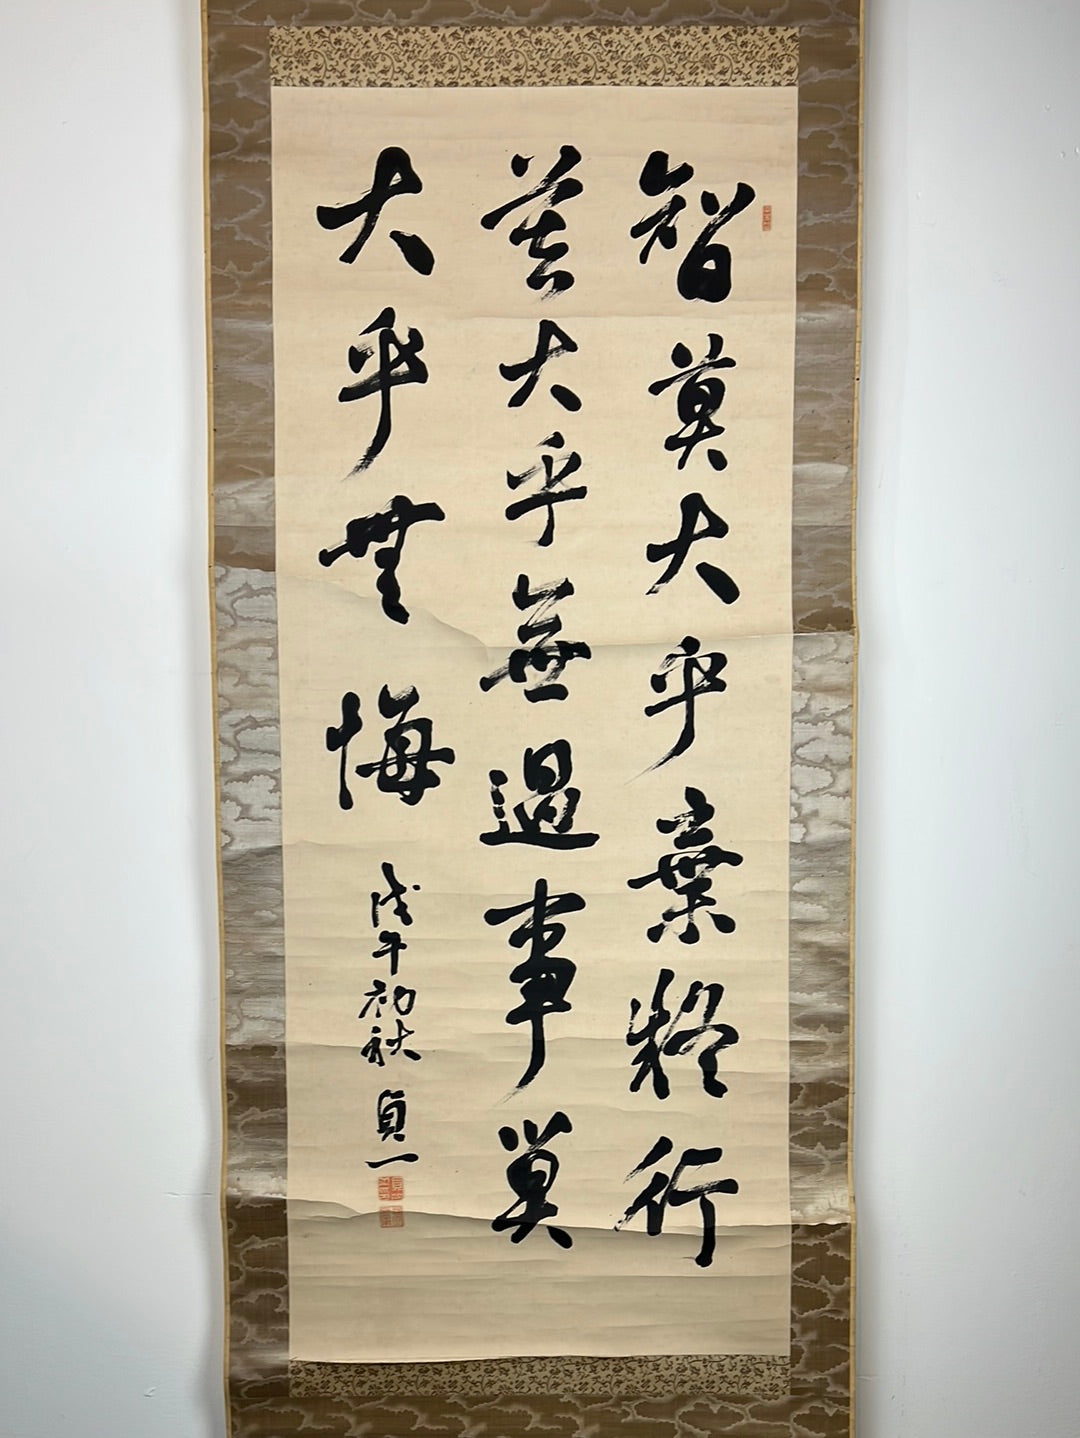 智莫大乎棄疑行
莫大乎無過事莫
大乎無悔
戊午初秋 貞一